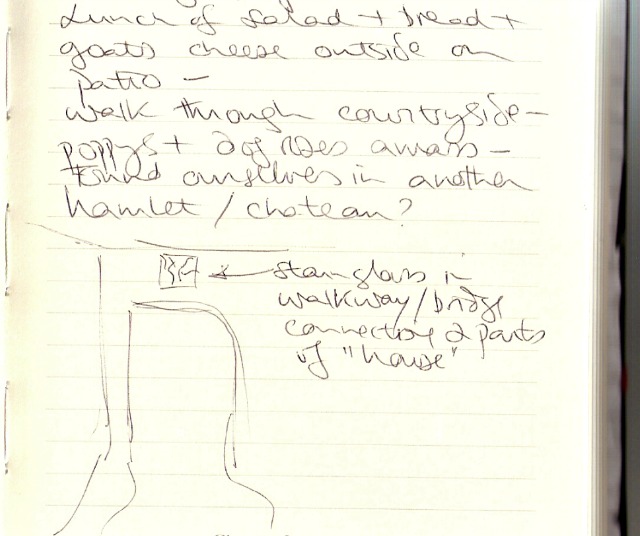 Lunch of salad + bread +
goats cheese outside on
patio –
walk through countryside –
poppys + dog roses –
found ourselves in another
hamlet / chateau?
stain glass in
walkway/bridge
connecting 2 parts
of "house"